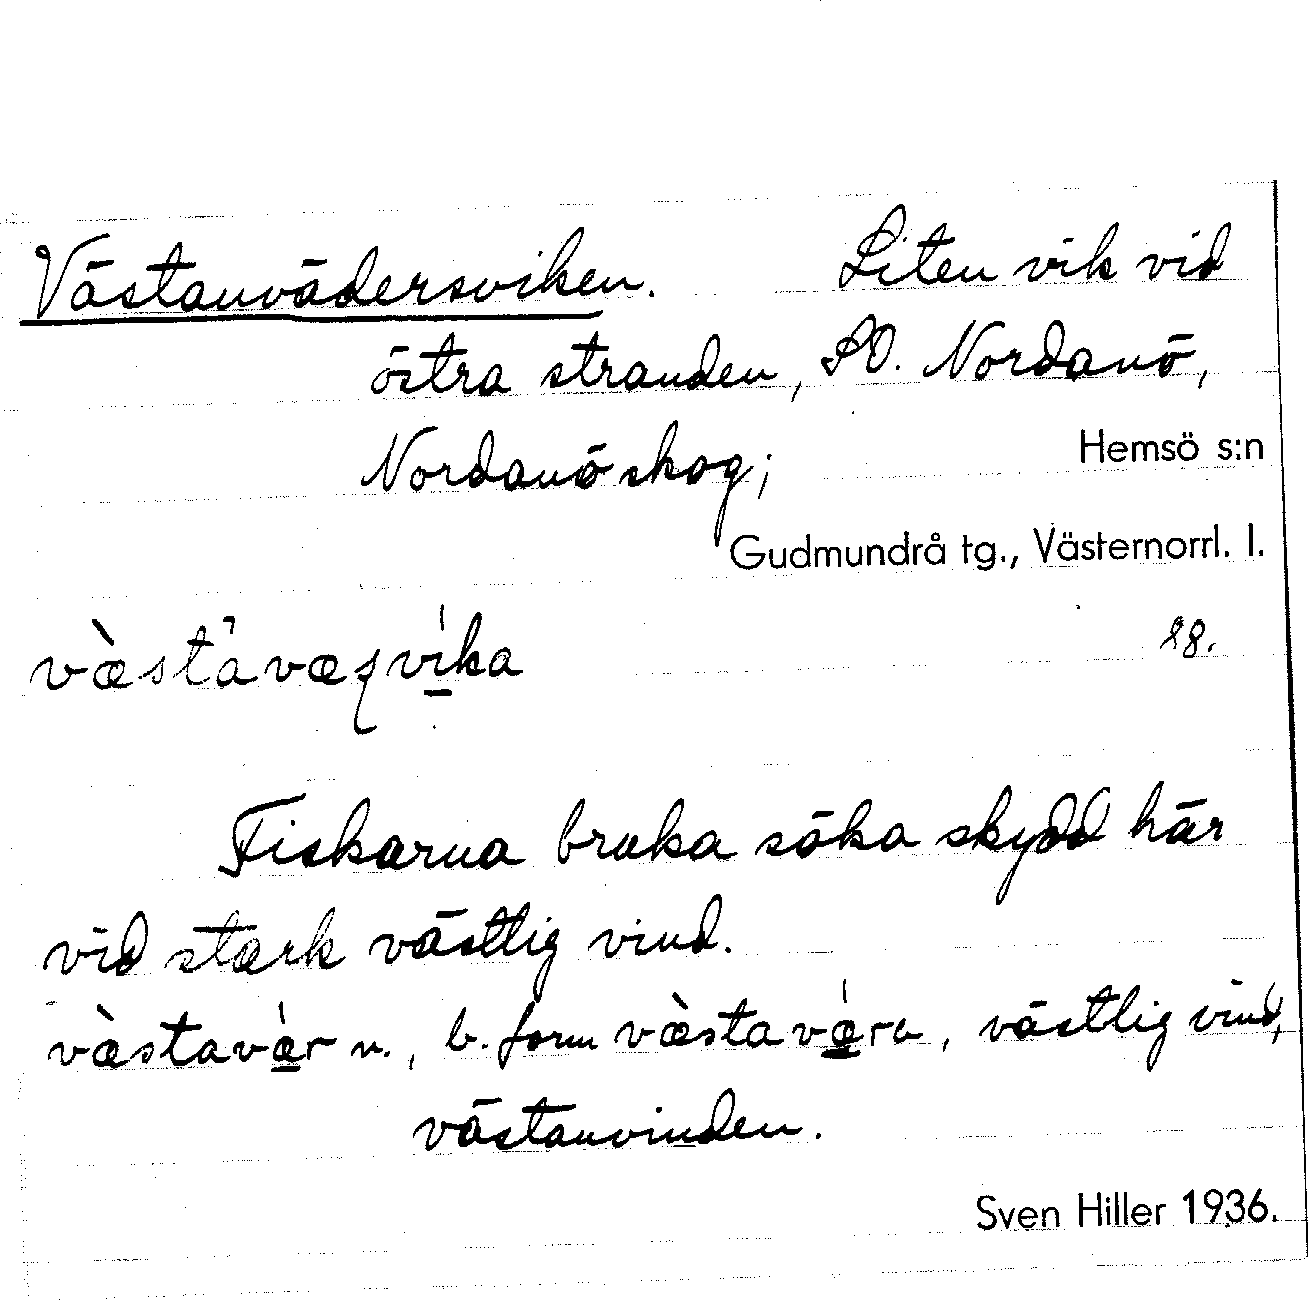 Västanvädersviken. Liten vik vid
östra stranden, SO. Nordanö,
Nordanö skog;
Hemsö s:n
Gudmundrå tg., Västernorrl. l.
88.
Fiskarna bruka söka skydd här
vid stark västlig vind.
væ̀stavæ̀́r n., b. form væ̀stavæ̀́rɷ, västlig vind,
västanvinden.
Sven Hiller 1936.